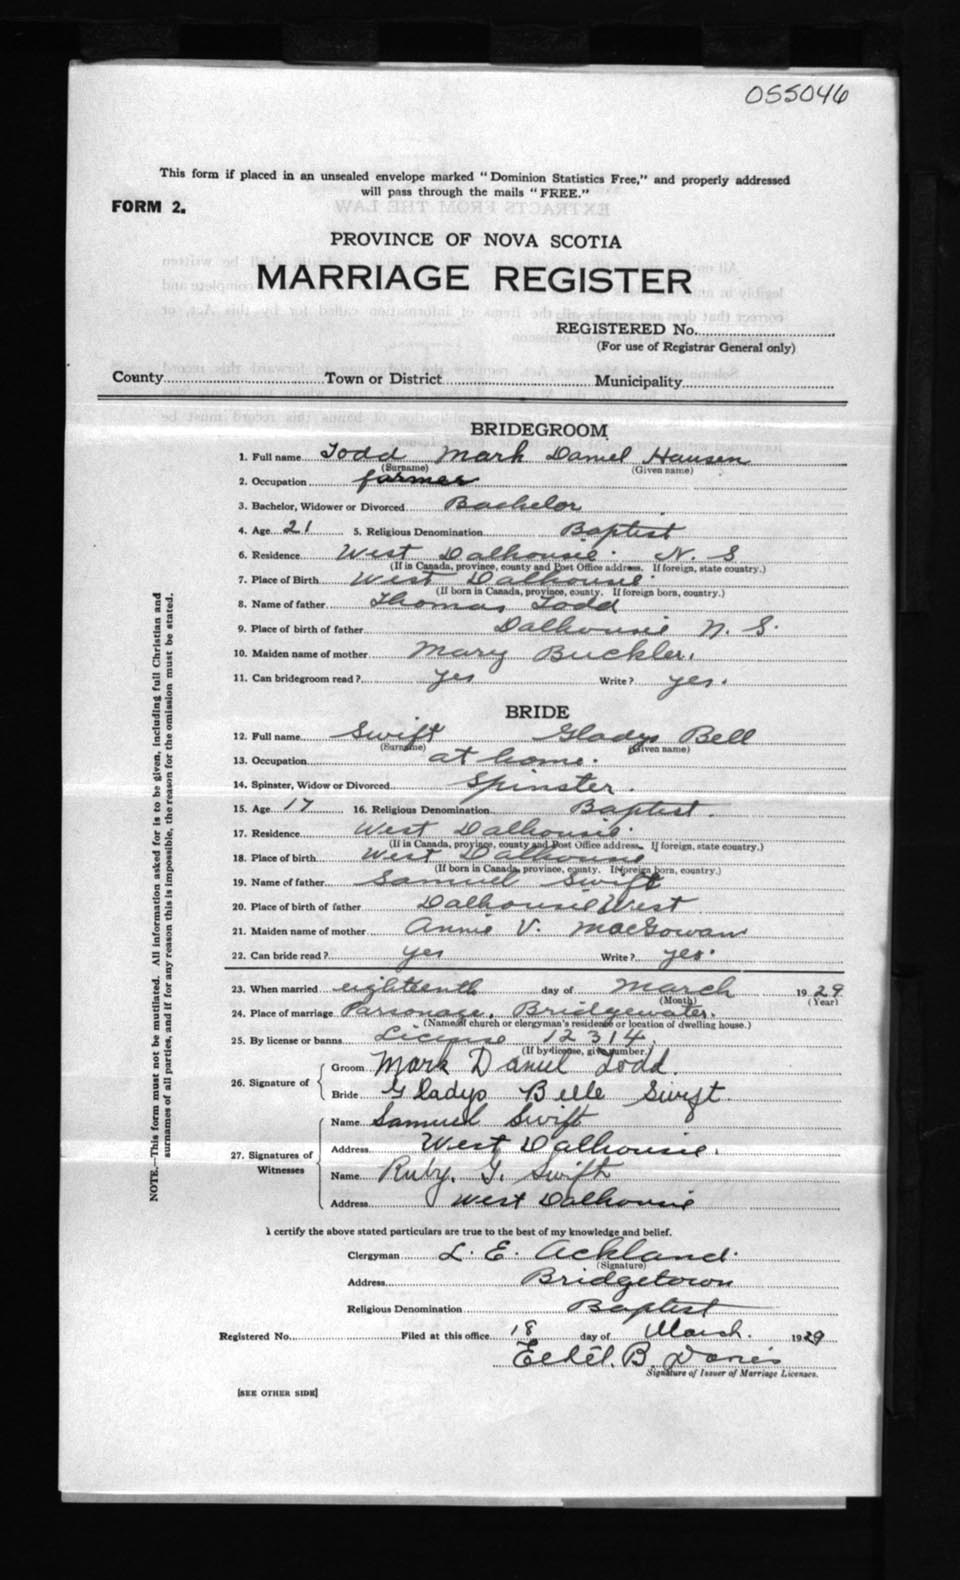 055046
This form if placed in an unsealed envelope marked "Dominion Statistics Free," and properly addressed
will pass through the mails "FREE."
FORM 2.
PROVINCE OF NOVA SCOTIA
MARRIAGE REGISTER
REGISTERED No.
(For use of Registrar General only)
County Town or District Municipality
BRIDEGROOM
1. Full name Todd Mark Daniel Hansen
(Surname) (Given name)
2. Occupation farmer
3. Bachelor, Widower or Divorced Bachelor
4. Age 21 5. Religious Denomination Baptist
6. Residence West Dalhousie N. S
(If in Canada, province, county and Post Office address. If foreign, state country.)
7. Place of Birth West Dalhousie
(If born in Canada, province, county. If foreign born, country.)
8. Name of father Thomas Todd
9. Place of birth of father Dalhousie N. S.
10. Maiden name of mother Mary Buckler.
11. Can bridegroom read? yes Write? yes.
BRIDE
12. Full name Swift Gladys Bell
(Surname) (Given name)
13. Occupation at home.
14. Spinster, Widow or Divorced Spinster.
15. Age 17 16. Religious Denomination Baptist.
17. Residence West Dalhousie.
(If in Canada, province, county and Post Office address. If foreign, state country.)
18. Place of birth West Dalhousie
(If born in Canada, province, county. If foreign born, country.)
19. Name of father Samuel Swift
20. Place of birth of father Dalhousie West
21. Maiden name of mother Annie V. MacGowan
22. Can bride read? yes Write? yes.
23. When married eighteenth day of March 1929
(Month) (Year)
24. Place of marriage Parsonage, Bridgewater.
(Name of church or clergyman's residence or location of dwelling house.)
25. By license or banns License 12314
(If by license, give number.)
26. Signature of Groom Mark Daniel Todd.
Bride Gladys Belle Swift.
27. Signatures of Witnesses Name Samuel Swift
Address West Dalhousie.
Name Ruby. T. Swift
Address West Dalhousie
I certify the above stated particulars are true to the best of my knowledge and belief.
Clergyman L. E. Ackland.
(Signature)
Address Bridgetown
Religious Denomination Baptist
Registered No. Filed at this office 18 day of March. 1929
B.
Signature of Issuer of Marriage Licenses.
[SEE OTHER SIDE]
NOTE.—This form must not be mutilated. All information asked for is to be given, including full Christian and
surnames of all parties, and if for any reason this is impossible, the reason for the omission must be stated.